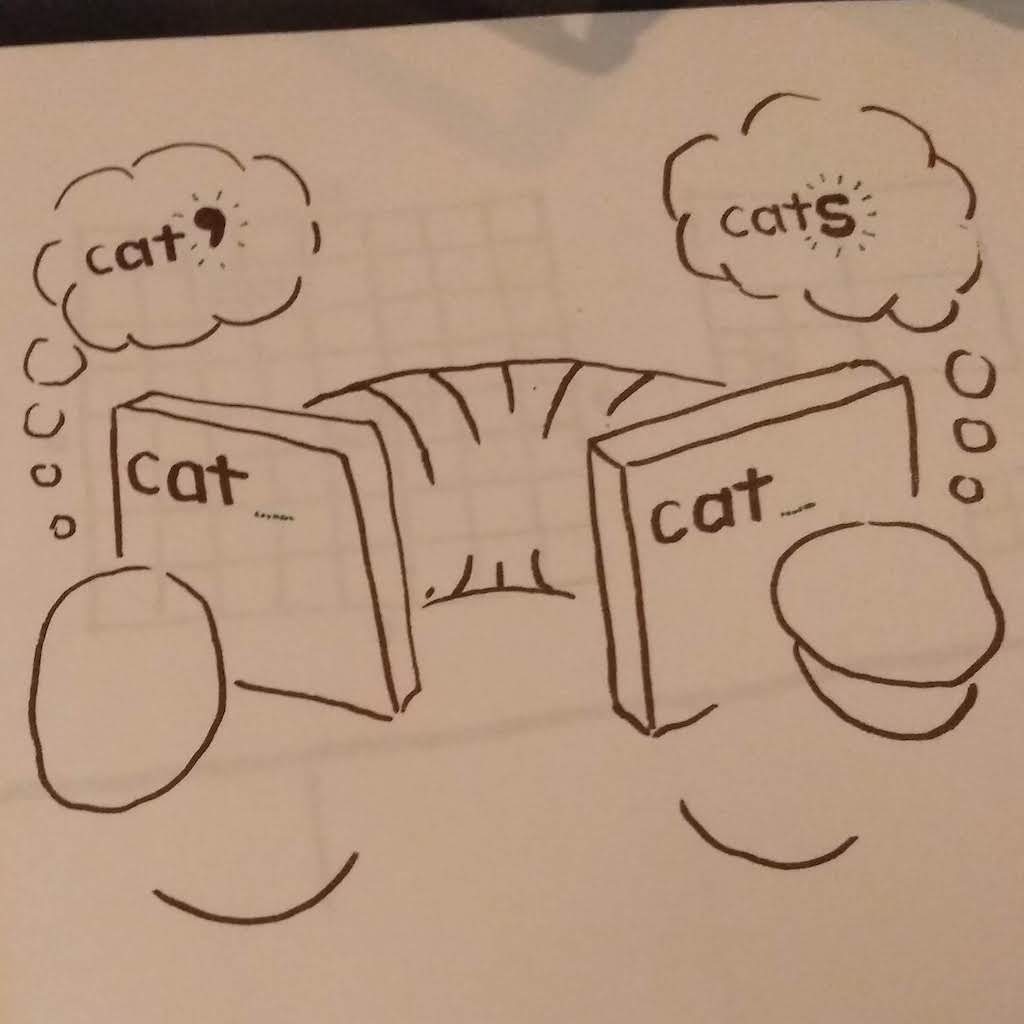 cat’
cats
cat_
cat_